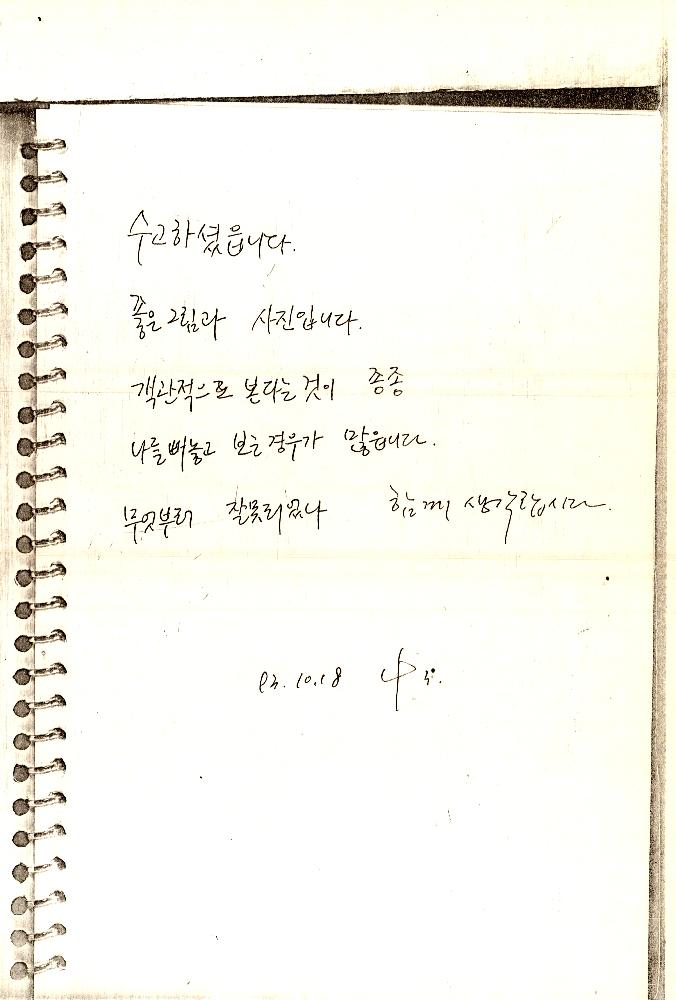 수고하셨읍니다.
좋은 그림과 사진입니다.
객관적으로 본다는 것이 종종
나를 빼놓고 보는 경우가 많읍니다.
무엇부터 잘못되었나 함께 생각합시다.
93. 10. 18